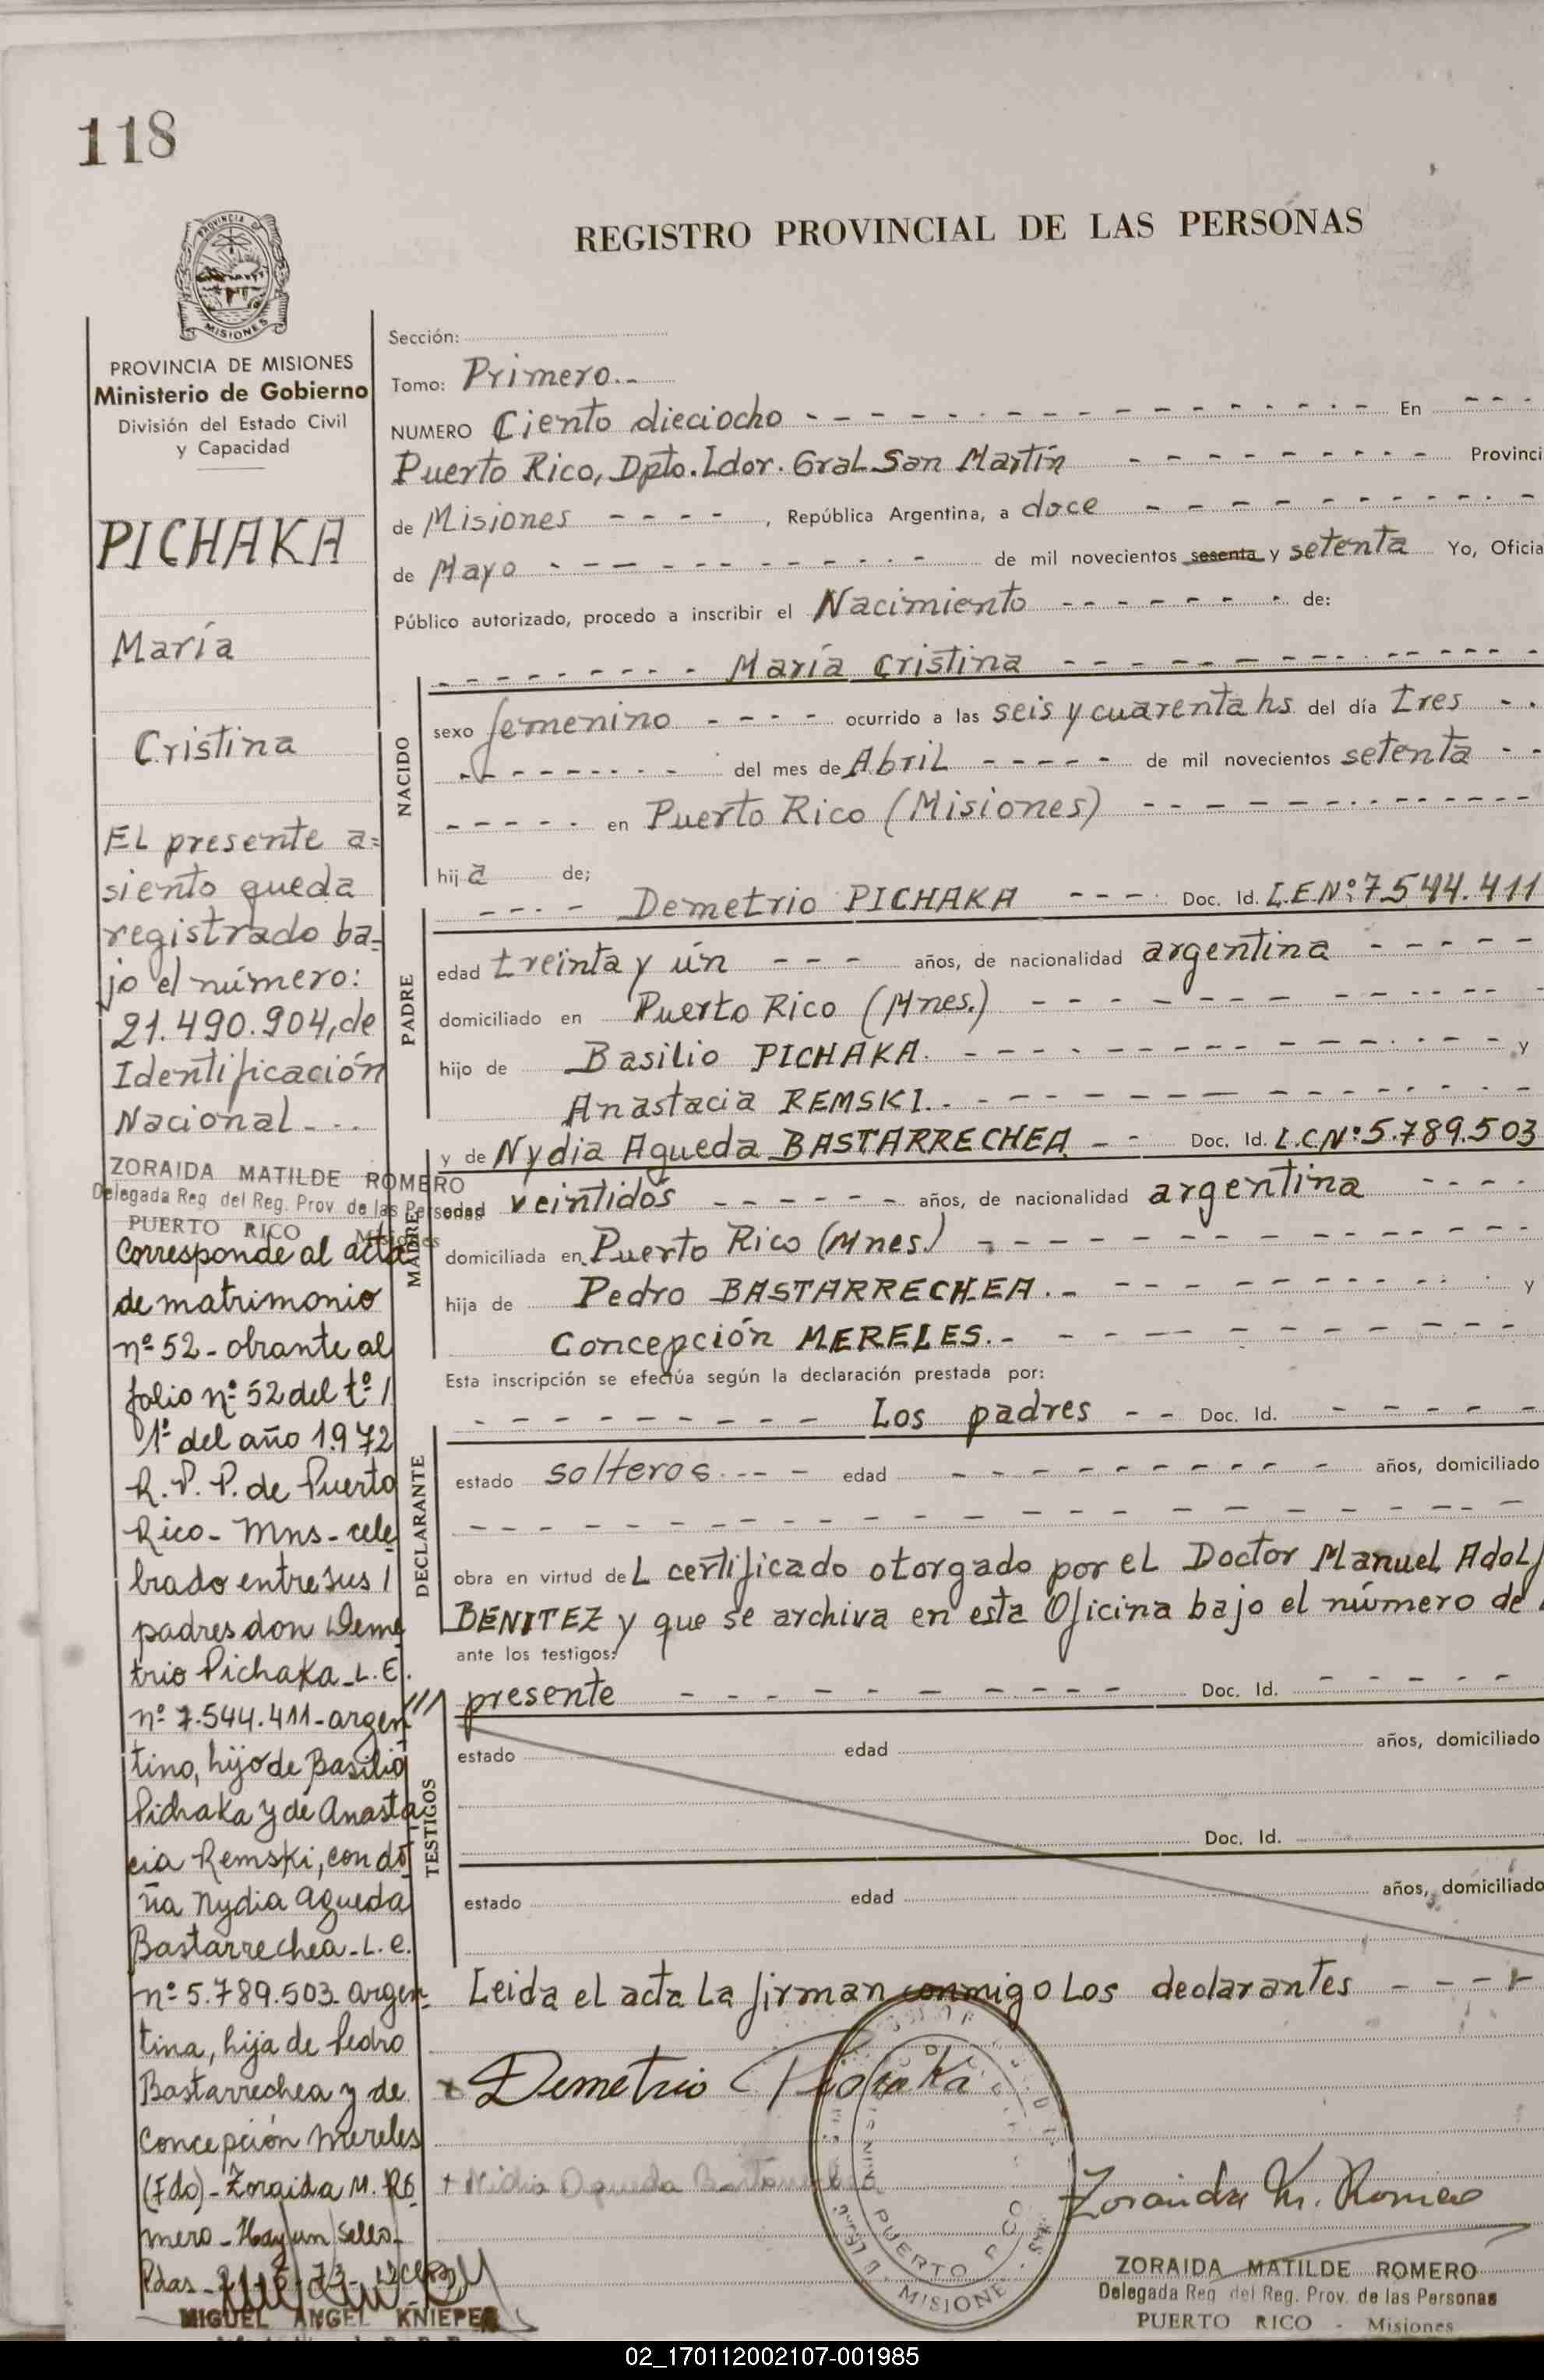 118
REGISTRO PROVINCIAL DE LAS PERSONAS
PROVINCIA DE MISIONES
Ministerio de Gobierno
División del Estado Civil
y Capacidad
PICHAKA
María
Cristina
EL presente a=
siento queda
registrado ba=
jo el número:
21.490.904, de
Identificación
Nacional - - -
ZORAIDA MATILDE ROMERO
Delegada Reg del Reg. Prov. de las Personas
PUERTO RICO Misiones
Corresponde al acta
de matrimonio
nº 52 - obrante al
folio nº 52 del tº /
1º del año 1972
R. P. P. de Puerto
Rico - Mns - cele
brado entre sus /
padres don Deme
trio Pichaka - L.E.
nº 7.544.411 - argen
tino, hijo de Basilio
Pichaka y de Anasta
cia Remski, con do
ña Nydia Agueda
Bastarrechea - L. e.
nº 5.789.503 argen-
tina, hija de Pedro
Bastarrechea y de
Concepción Mereles
(Fdo) - Zoraida M. Ro
mero - Hay un Sello -
Pdas -
MIGUEL ANGEL KNIEPER
Sección:
Tomo: Primero. -
NUMERO Ciento dieciocho - - - En - - -
Puerto Rico, Dpto. Ldor. Gral San Martín - - - Provinci
de Misiones - - - - , República Argentina, a doce - - -
de Mayo - - - de mil novecientos sesenta y setenta Yo, Oficia
Público autorizado, procedo a inscribir el Nacimiento - - - de:
NACIDO
- - - María Cristina - - -
sexo femenino - - - - ocurrido a las seis y cuarenta hs del día tres - -
- - - del mes de Abril - - - de mil novecientos setenta - -
- - - en Puerto Rico (Misiones) - - -
hij a de;
PADRE
- - - - Demetrio PICHAKA - - - Doc. Id. L.E.Nº:7.544.411
edad treinta y ún - - - años, de nacionalidad argentina - - -
domiciliado en Puerto Rico (Mnes.) - - -
hijo de Basilio PICHAKA. - - - y
Anastacia REMSKI. - - -
MADRE
y de Nydia Agueda BASTARRECHEA - - Doc. Id. L.C.Nº:5.789.503
edad veintidós - - - años, de nacionalidad argentina - - - -
domiciliada en Puerto Rico (Mnes.) - - -
hija de Pedro BASTARRECHEA. - - - - y
Concepción MERELES. - - - -
Esta inscripción se efectúa según la declaración prestada por:
DECLARANTE
- - - Los padres - - Doc. Id. - - -
estado solteros - - - edad - - - años, domiciliado
- - -
obra en virtud de L certificado otorgado por el Doctor Manuel Adolf
BENITEZ y que se archiva en esta Oficina bajo el número de
ante los testigos:
/// presente - - - Doc. Id. - - -
TESTIGOS
estado edad años, domiciliado
Doc. Id.
estado edad años, domiciliado
Leida el acta la firman conmigo los declarantes - - -
x Demetrio Pichaka
+ Nidia Agueda Bastarrechea
PUERTO RICO
MISIONES
Zoraida M. Romero
ZORAIDA MATILDE ROMERO
Delegada Reg del Reg. Prov. de las Personas
PUERTO RICO - Misiones
02_170112002107-001985